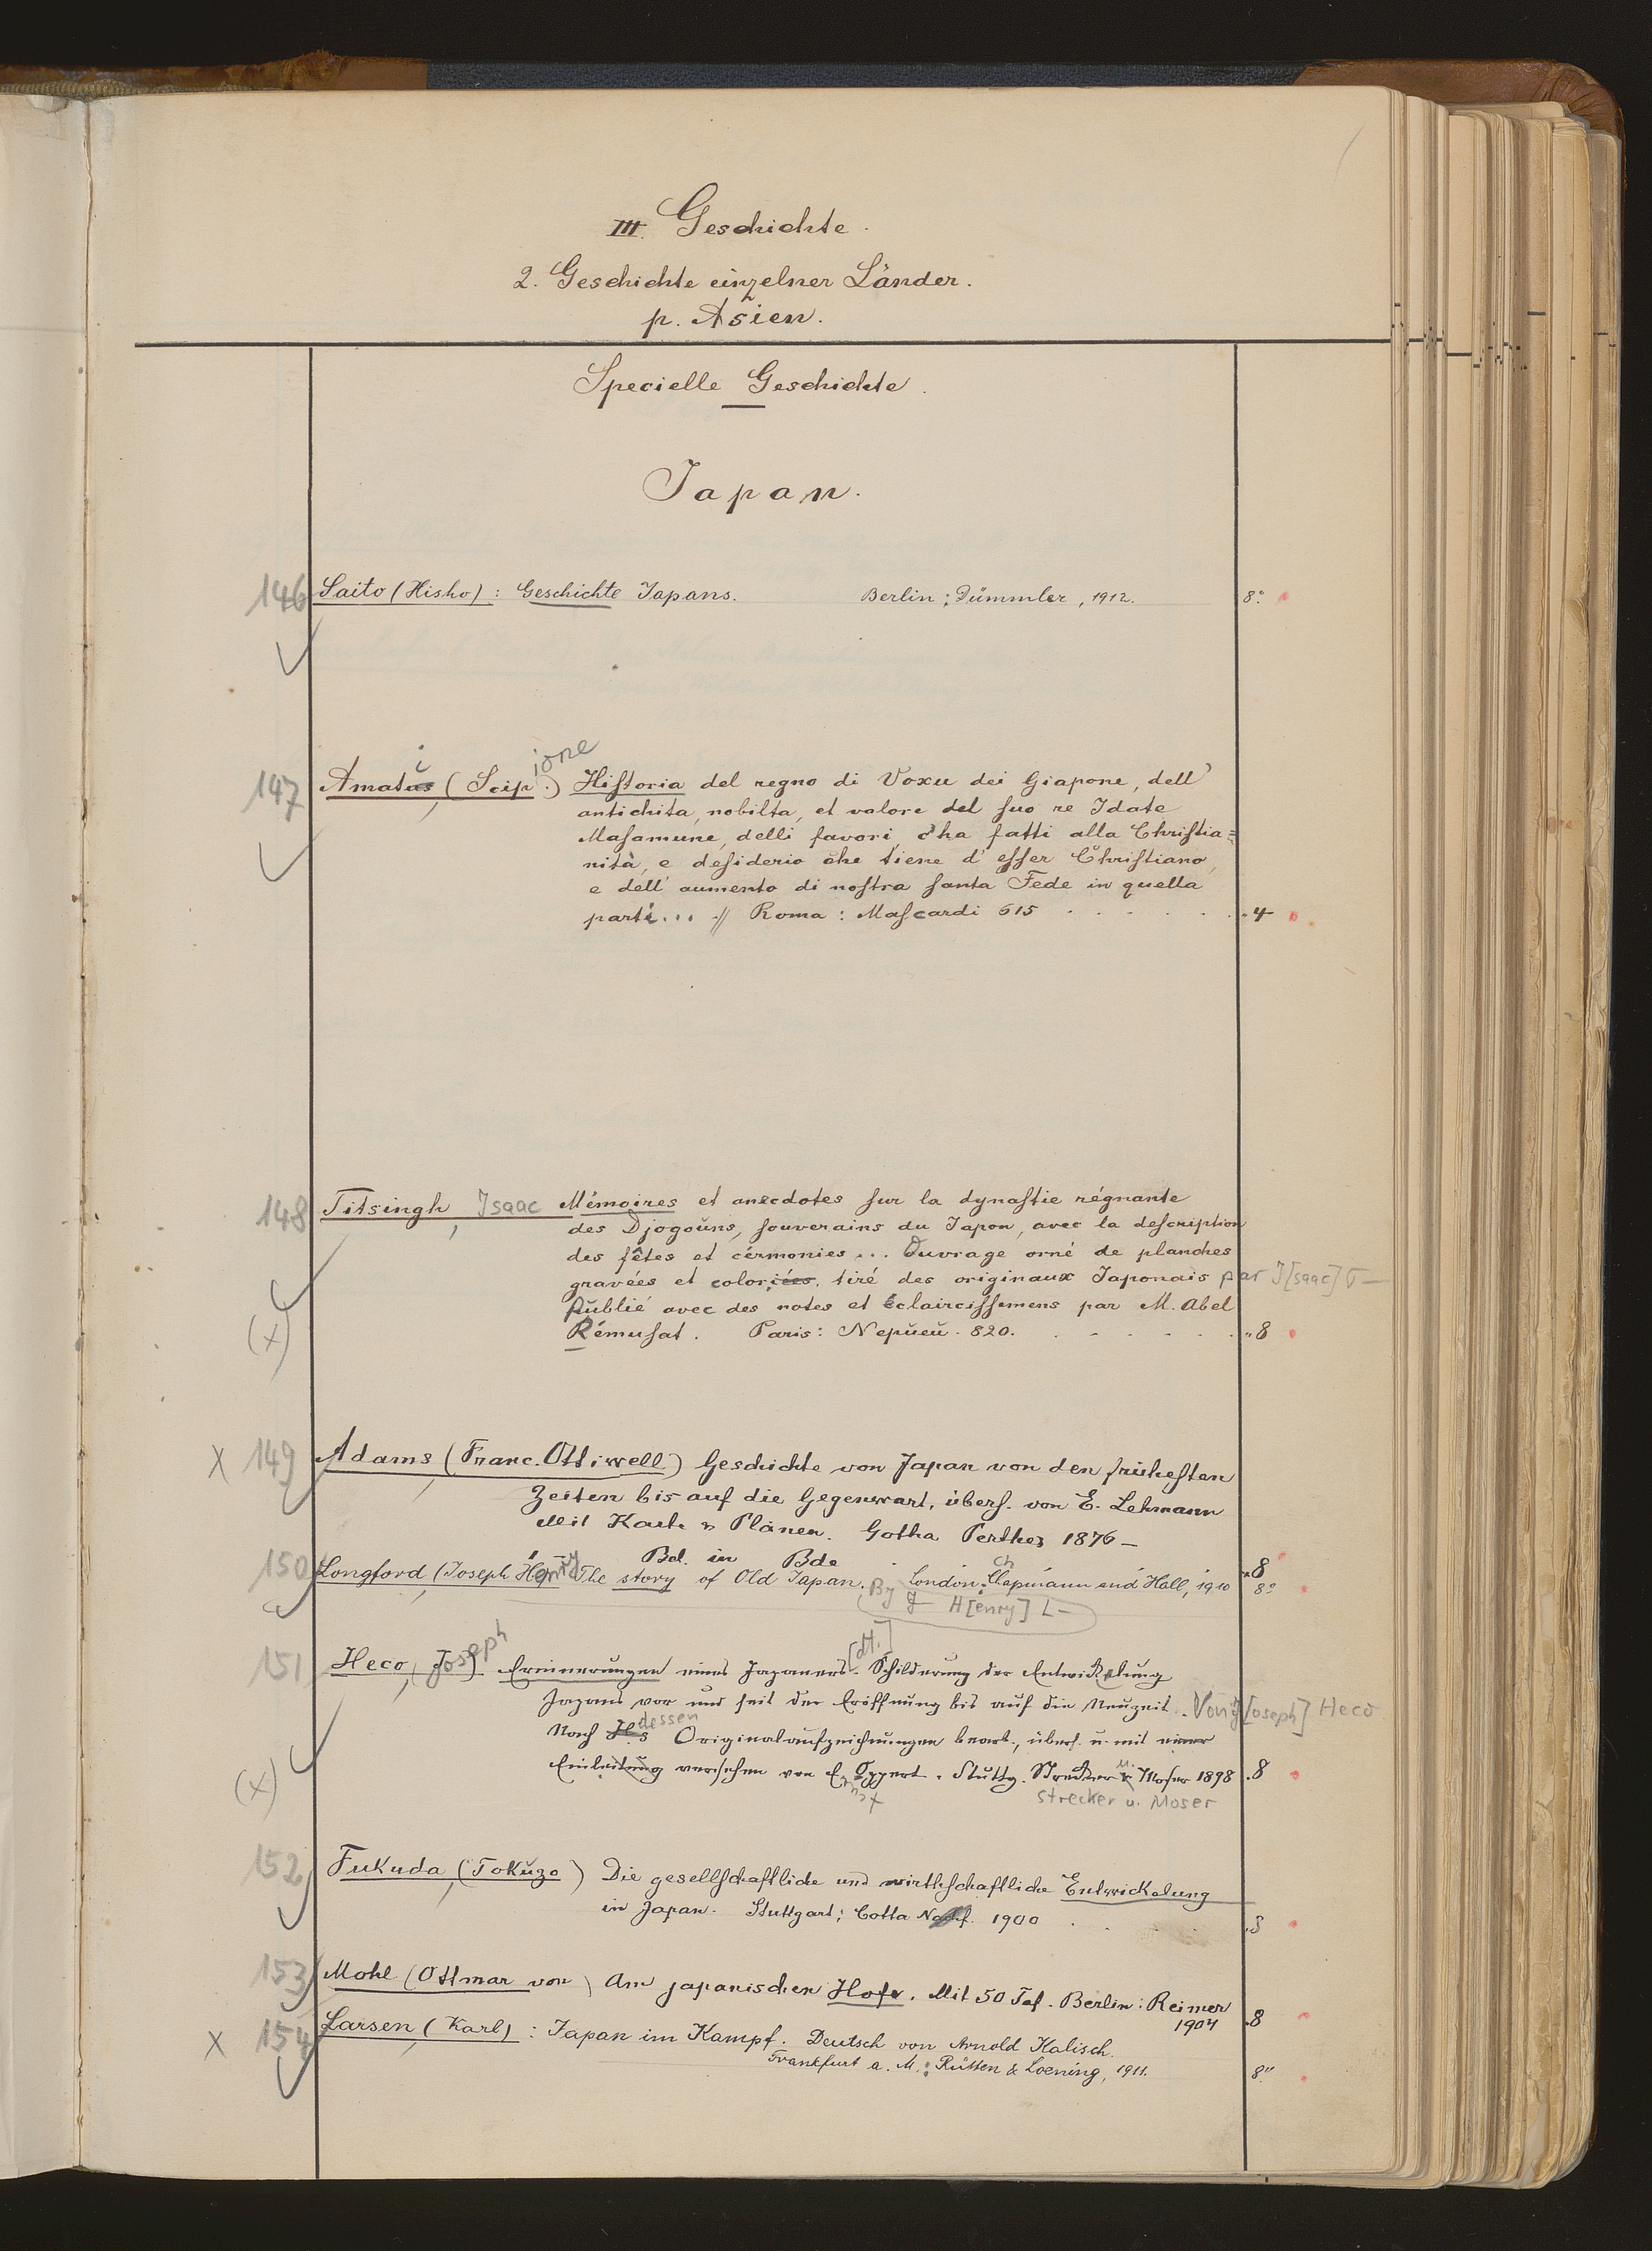 III. Geschichte.
2. Geschichte einzelner Länder.
p. Asien.
Specielle Geschichte.
Japan.
146 Saito (Hisho): Geschichte Japans. Berlin: Dümmler, 1912. 8°
ione
147 Amatus i (Scip.) Hiſtoria del regno di Voxu dei Giapone, dell'
antichita, nobilta, et valore del ſuo re Idate
Maſamune, delli favori c'ha fatti alla Chriſtia=
nità, e deſiderio che tiene d'eſſer Chriſtiano,
e dell' aumento di noſtra ſanta Fede in quella
parti... // Roma: Maſcardi 615 . . . . . . 4
148 Titsingh, Isaac Mémoires et anecdotes ſur la dynaſtie régnante
des Djogoŭns, ſouverains du Japon, avec la deſcription
des fêtes et cérmonies ... Ouvrage orné de planches
gravées et coloriées, tiré des originaux Japonais par I[saac] T—
(x) Publié avec des notes et éclairciſſemens par M. Abel
Rémuſat. Paris: Nepŭeŭ. 820. . . . . . . 8
x 149 Adams (Franc. Ottiwell) Geschichte von Japan von den früheſten
Zeiten bis auf die Gegenwart, überſ. von E. Lehmann
Mit Karte & Plänen. Gotha Perthes 1876 —
Bd. in Bde . 8
150 Longford (Joseph Henry) The story of Old Japan. London: Chapmann and Hall, 1910 8°
By J— H[enry] L—
151 Heco, (Joseph) Erinnerungen eines Japaners [dt.]. Schilderung der Entwickelung
Japans vor und ſeit der Eröffnung bis auf die Neuzeit. Von J[oseph] Heco
Nach H.s dessen Originalaufzeichnungen bearb., überſ. u. mit einer
(x) Einleitung verſehen von Ernst Oppert. Stuttg. Strecker u. Moſer 1898 8
strecker u. Moser
152 Fukuda (Tokŭzo) Die geſellſchaftliche und wirthſchaftliche Entwickelung
in Japan. Stuttgart: Cotta Nachf. 1900 . . 8
153 Mohl (Ottmar von) Am japanischen Hofe. Mit 50 Taf. Berlin: Reimer
1904 8
x 154 Larsen (Karl): Japan im Kampf. Deutsch von Arnold Kalisch.
Frankfurt a. M.: Rütten & Loening, 1911. 8°